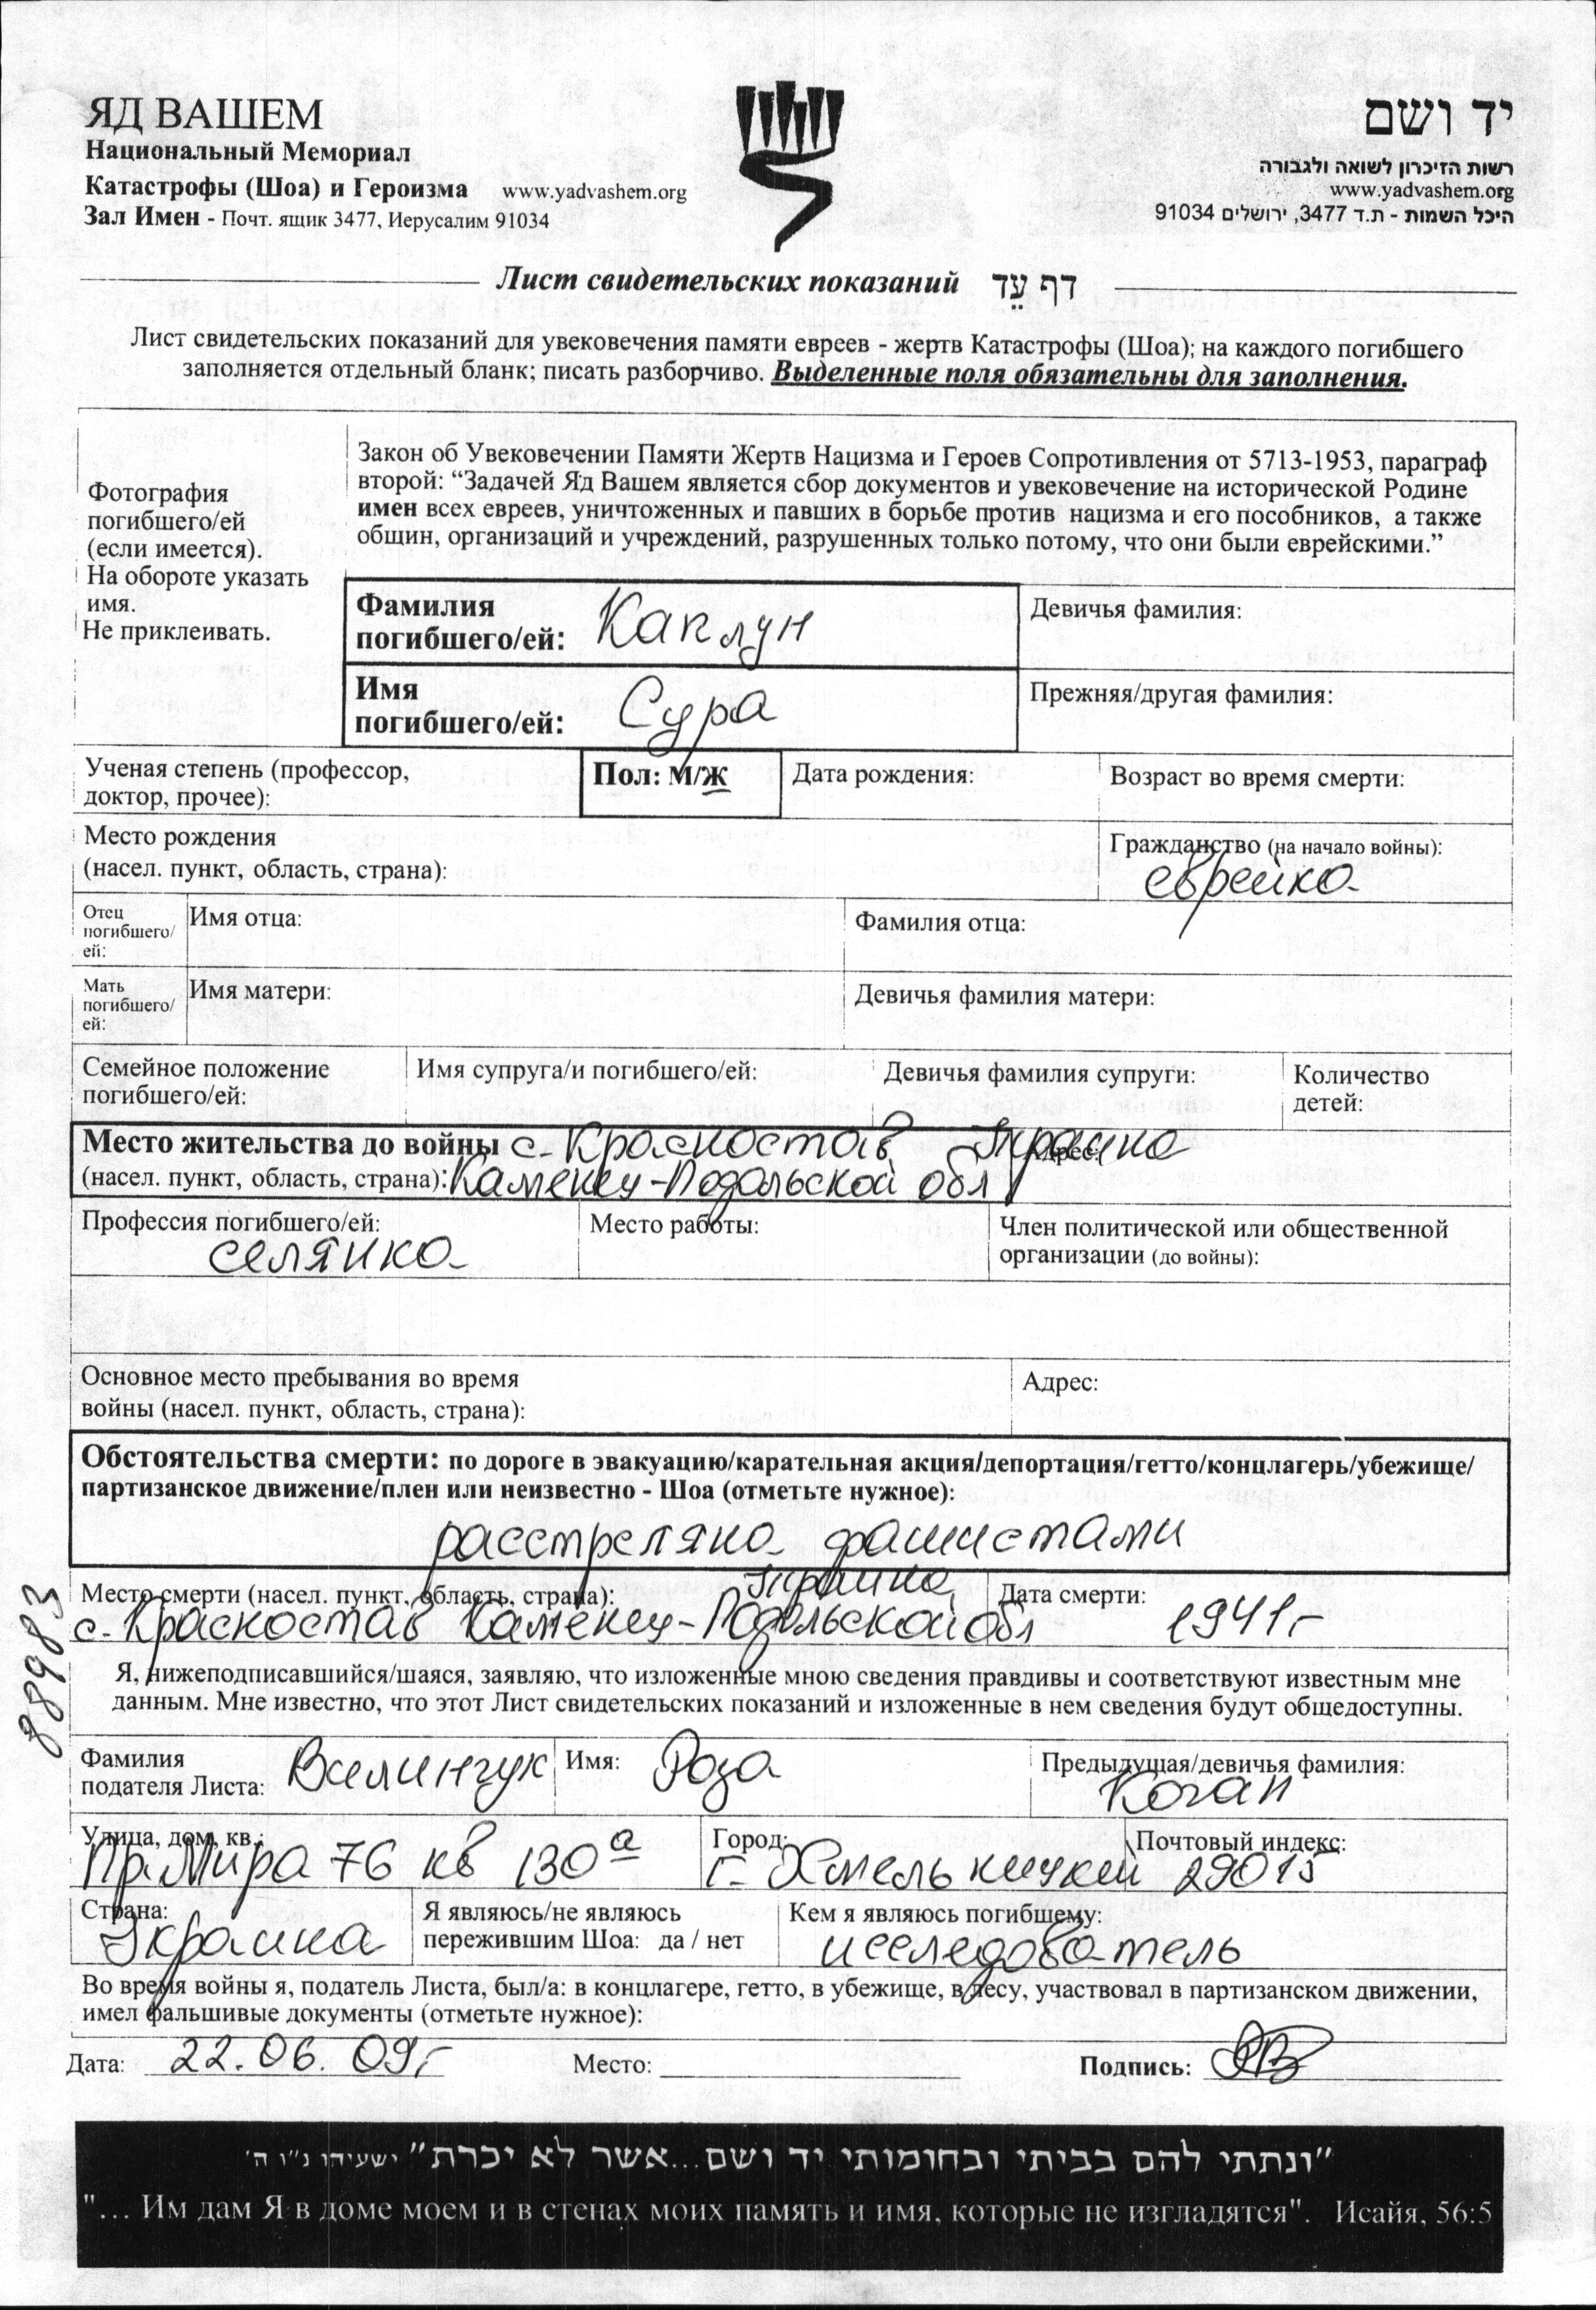 ЯД ВАШЕМ
Национальный Мемориал
Катастрофы (Шоа) и Героизма www.yadvashem.org
Зал Имен - Почт. ящик 3477, Иерусалим 91034
יד ושם
רשות הזיכרון לשואה ולגבורה
www.yadvashem.org
היכל השמות - ת.ד 3477, ירושלים 91034
Лист свидетельских показаний דף עֵד
Лист свидетельских показаний для увековечения памяти евреев - жертв Катастрофы (Шоа); на каждого погибшего
заполняется отдельный бланк; писать разборчиво. Выделенные поля обязательны для заполнения.
Фотография
погибшего/ей
(если имеется).
На обороте указать
имя.
Не приклеивать.
Закон об Увековечении Памяти Жертв Нацизма и Героев Сопротивления от 5713-1953, параграф
второй: “Задачей Яд Вашем является сбор документов и увековечение на исторической Родине
имен всех евреев, уничтоженных и павших в борьбе против нацизма и его пособников, а также
общин, организаций и учреждений, разрушенных только потому, что они были еврейскими.”
Фамилия
погибшего/ей: Каплун
Девичья фамилия:
Имя
погибшего/ей: Сура
Прежняя/другая фамилия:
Ученая степень (профессор,
доктор, прочее):
Пол: М/Ж
Дата рождения:
Возраст во время смерти:
Место рождения
(насел. пункт, область, страна):
Гражданство (на начало войны):
еврейка
Отец
погибшего/
ей:
Имя отца:
Фамилия отца:
Мать
погибшего/
ей:
Имя матери:
Девичья фамилия матери:
Семейное положение
погибшего/ей:
Имя супруга/и погибшего/ей:
Девичья фамилия супруги:
Количество
детей:
Место жительства до войны с. Красностав Украина
Адрес:
(насел. пункт, область, страна): Каменец-Подольской обл
Профессия погибшего/ей:
селянка
Место работы:
Член политической или общественной
организации (до войны):
Основное место пребывания во время
войны (насел. пункт, область, страна):
Адрес:
Обстоятельства смерти: по дороге в эвакуацию/карательная акция/депортация/гетто/концлагерь/убежище/
партизанское движение/плен или неизвестно - Шоа (отметьте нужное):
расстреляна фашистами
Место смерти (насел. пункт, область, страна): Украина
с. Красностав Каменец-Подольской обл
Дата смерти:
1941г
88983
Я, нижеподписавшийся/шаяся, заявляю, что изложенные мною сведения правдивы и соответствуют известным мне
данным. Мне известно, что этот Лист свидетельских показаний и изложенные в нем сведения будут общедоступны.
Фамилия
подателя Листа: Вилинчук
Имя: Роза
Предыдущая/девичья фамилия:
Коган
Улица, дом, кв.:
Пр. Мира 76 кв 130а
Город:
г. Хмельницкий
Почтовый индекс:
29015
Страна:
Украина
Я являюсь/не являюсь
пережившим Шоа: да / нет
Кем я являюсь погибшему:
исследователь
Во время войны я, податель Листа, был/а: в концлагере, гетто, в убежище, в лесу, участвовал в партизанском движении,
имел фальшивые документы (отметьте нужное):
Дата: 22.06.09г Место: Подпись:
"ונתתי להם בביתי ובחומותי יד ושם...אשר לא יכרת" ישעיהו נ"ו ה'
"... Им дам Я в доме моем и в стенах моих память и имя, которые не изгладятся". Исайя, 56:5